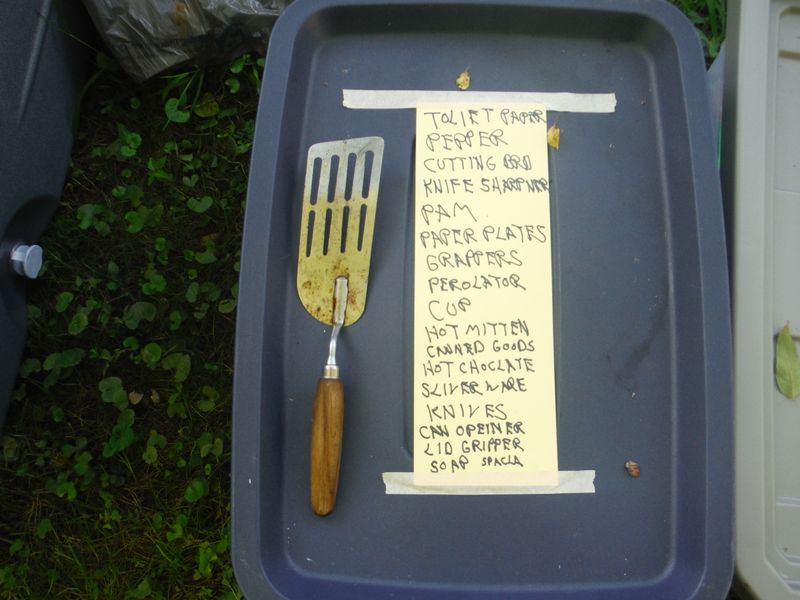 TOLIET PAPER
PEPPER
CUTTING BRD
KNIFE SHARPNER
PAM
PAPER PLATES
GRAPPERS
PEROLATOR
CUP
HOT MITTEN
CANNED GOODS
HOT CHOCLATE
SLIVERWARE
KNIVES
CAN OPEINER
LID GRIPPER
SOAP SPACLA